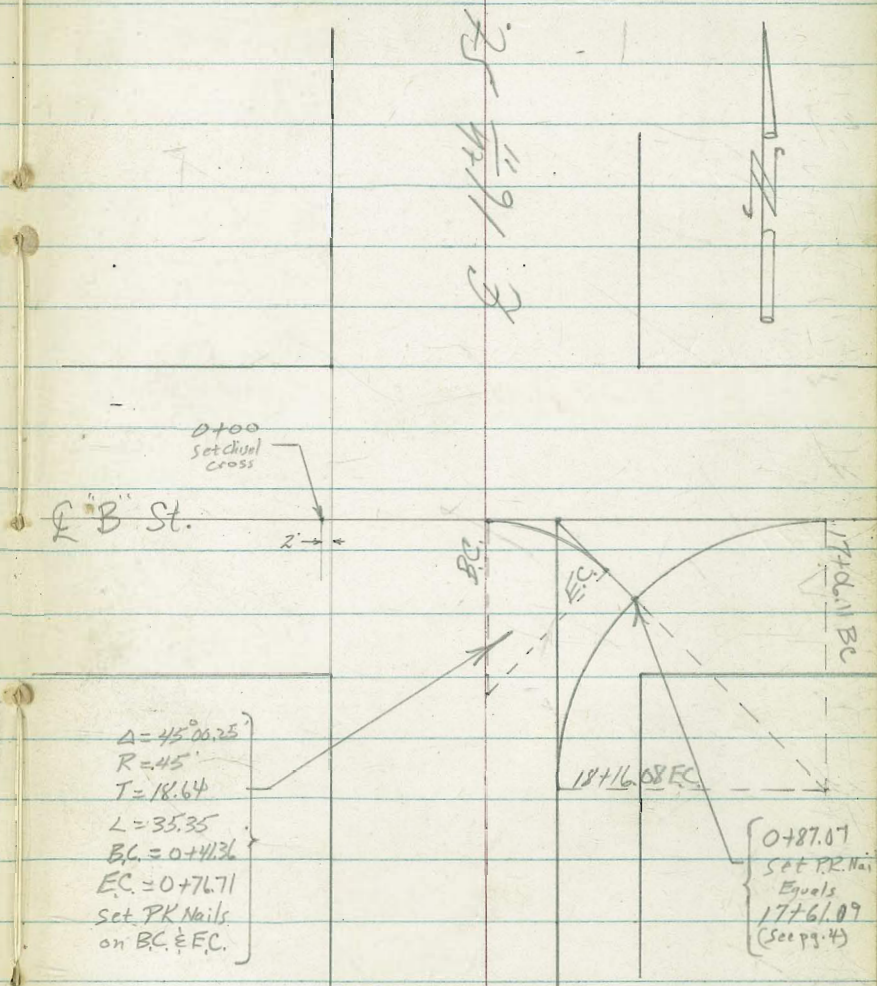 0+00
Set chisel
cross
℄ "B" St.
2'
B.C.
E.C.
17+06.11 BC
18+16.08 E.C.
Δ = 45°00.25'
R = 45'
T = 18.64
L = 35.35
B.C. = 0+41.36
E.C. = 0+76.71
Set PK Nails
on B.C. & E.C.
0+87.07
Set P.K. Nai
Equals
17+61.09
(See pg. 4)